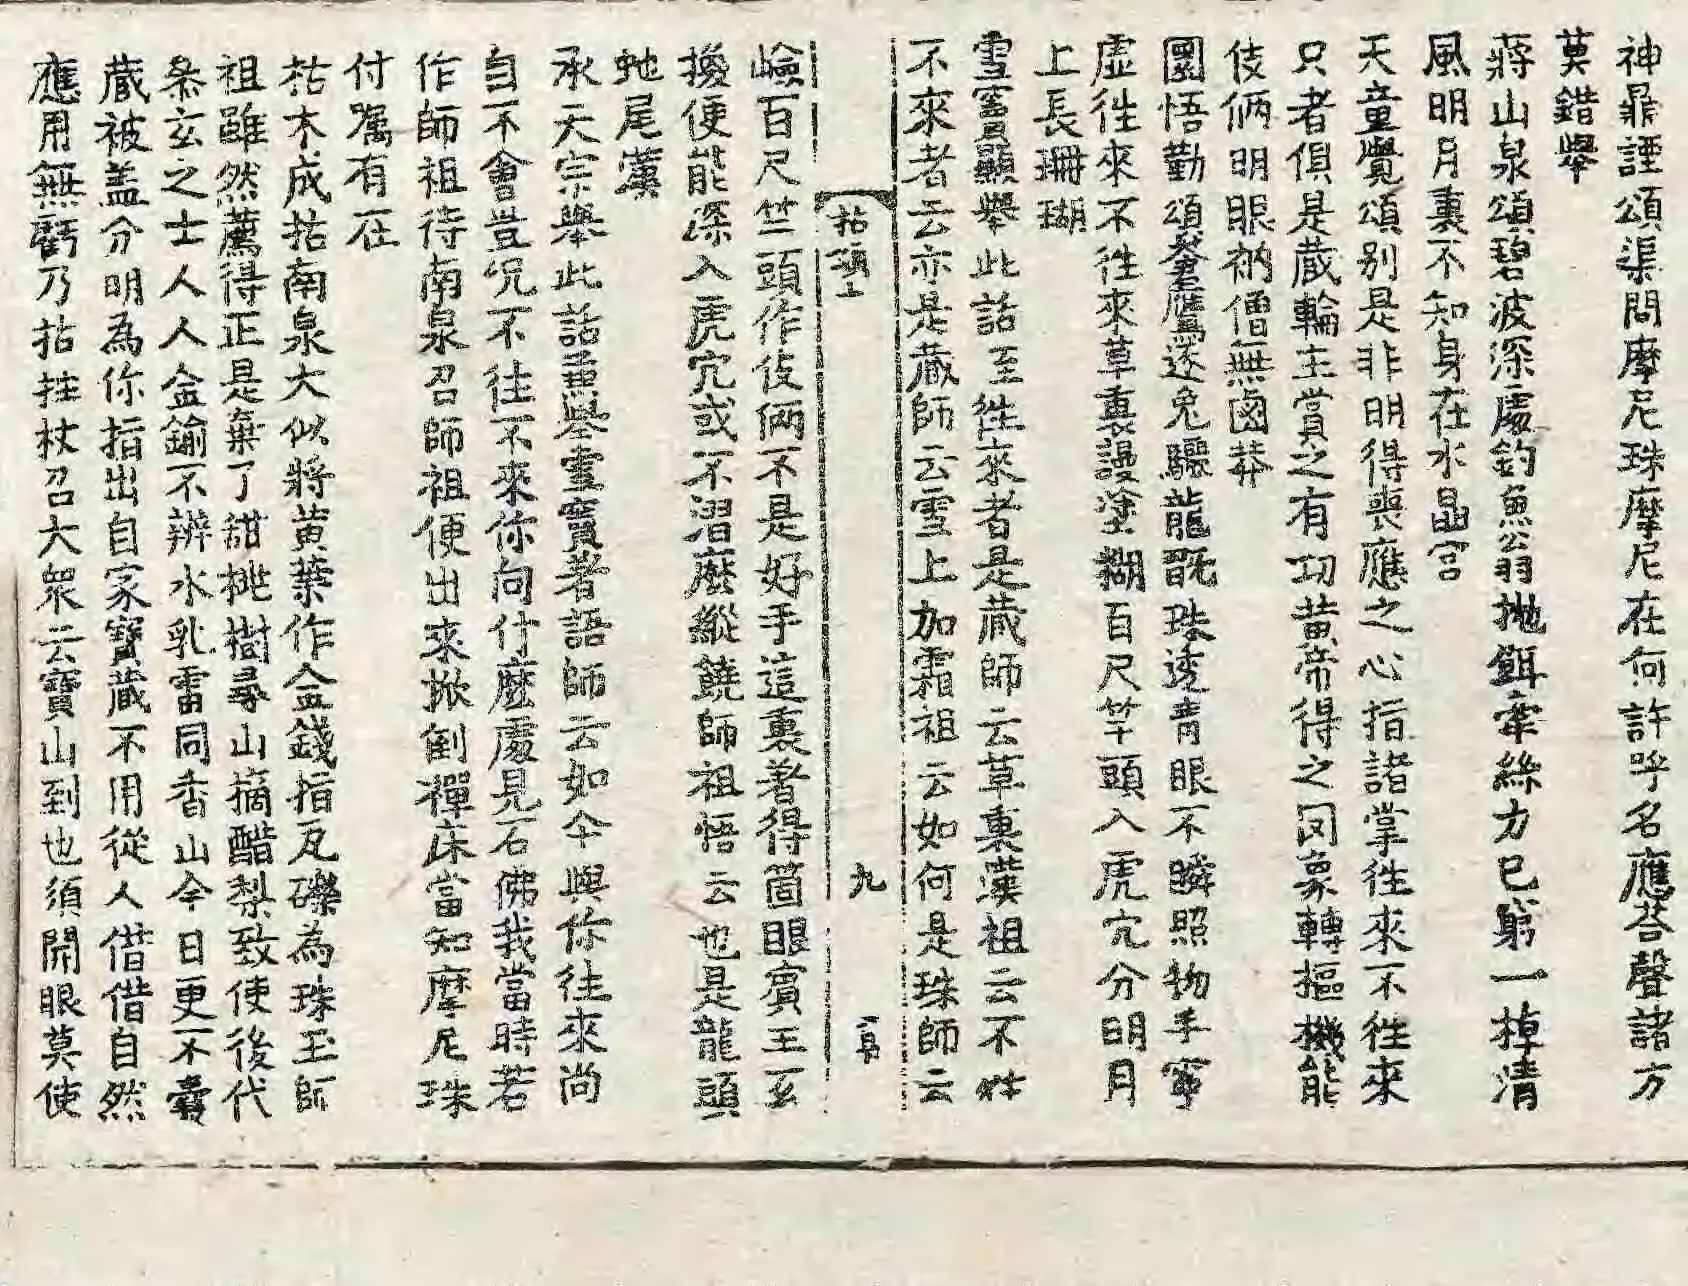 神鼎諲頌渠問摩尼珠摩尼在何許呼名應荅聲諸方
莫錯舉
蔣山泉頌碧波深處釣魚翁拋餌牽絲力已窮一棹清
風明月裏不知身在水晶宮
天童覺頌别是非明得喪應之心指諸掌徃來不徃來
只者俱是蔵輪王賞之有功黄帝得之罔象轉摳機能
伎倆明眼衲僧無鹵莽
圜悟勤頌蒼鷹逐兔驪龍翫珠透青眼不瞬照物手寧
虛徃來不徃來草裏謾塗糊百尺竿頭入虎穴分明月
上長珊瑚
雪竇顯舉此話至徃來者是蔵師云草裏漢祖云不徃
不來者云亦是蔵師云雪上加霜祖云如何是珠師云
拈頌上 九
嶮百尺竿頭作伎倆不是好手這裏著得箇眼賓主互
換便能深入虎穴或不㴷麽縱饒師祖悟云也是龍頭
虵尾漢
承天宗舉此話兼舉雪竇著語師云如今與你往來尚
自不會豈况不往不來你向什麽處見石佛我當時若
作師祖待南泉召師祖便出來掀倒禪床當知摩尼珠
付囑有在
枯木成拈南泉大似將黄葉作金錢指瓦礫為珠玉師
祖雖然薦得正是棄了甜桃樹尋山摘醋梨致使後代
叅玄之士人人金鍮不辨水乳雷同香山今日更不囊
蔵被盖分明為你指出自家寶蔵不用從人借借自然
應用無虧乃拈拄杖召大衆云寶山到也須開眼莫使